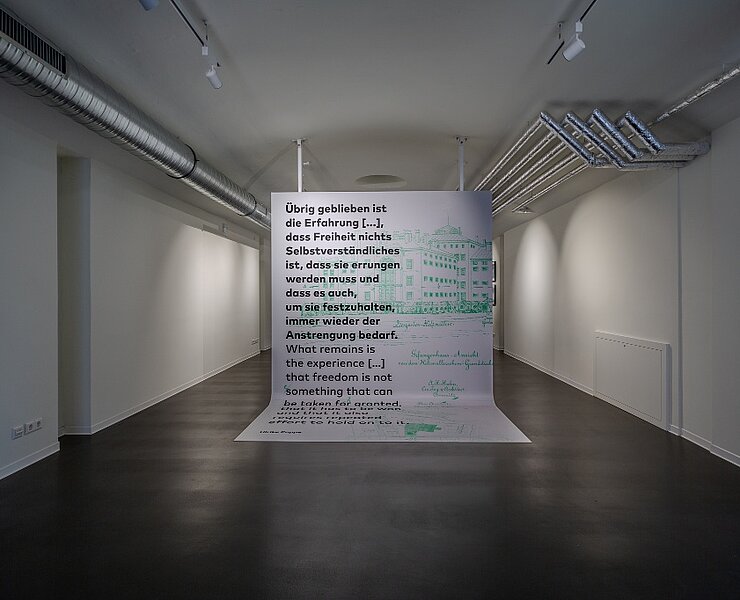 Übrig geblieben ist
die Erfahrung [...],
dass Freiheit nichts
Selbstverständliches
ist, dass sie errungen
werden muss und
dass es auch,
um sie festzuhalten,
immer wieder der
Anstrengung bedarf.
What remains is
the experience [...]
that freedom is not
something that can
be taken for granted,
that it has to be won
and that it also
requires constant
effort to hold on to it.
Ulrike Poppe
Gefangenhaus Ansicht